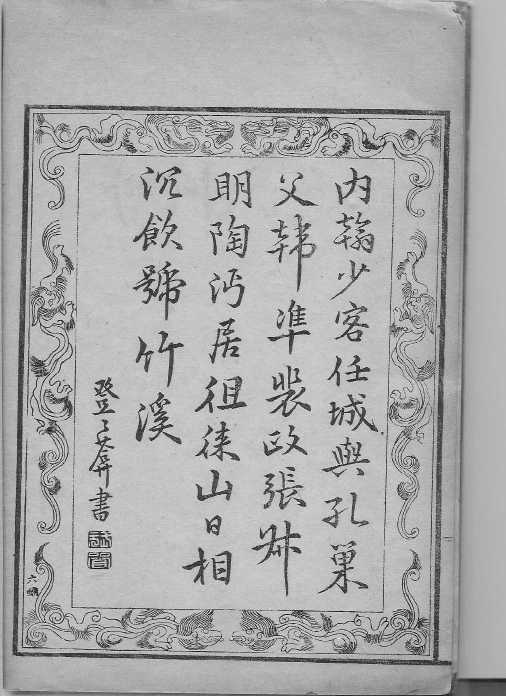 內翰少客任城與孔巢
父韓凖裴政張叔
明陶沔居徂徠山日相
沉飲號竹溪
書
六